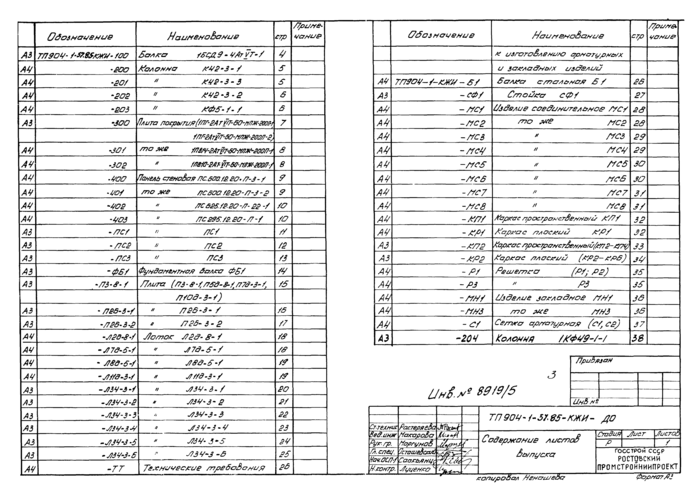 Обозначение Наименование стр Приме-чание
А3 ТП904-1-57.85 КЖИ-100 Балка 1БСД9-4АтVТ-1 4
А4 -200 Колонна К42-3-1 5
А4 -201 " К42-3-3 5
А4 -202 " К42-3-2 6
А4 -203 " КФ5-1-1 6
А3 -300 Плита покрытия 7
А4 -301 то же 8
А4 -302 " 8
А4 -400 Панель стеновая ПС600.12.20-П-3-1 9
А4 -401 то же ПС600.12.20-П-3-2 9
А4 -402 " 10
А4 -403 " 10
А3 -ПС1 " ПС1 11
А3 -ПС2 " ПС2 12
А3 -ПС3 " ПС3 13
А3 -ФБ1 Фундаментная балка ФБ1 14
А3 -П3-8-1 Плита 15
А3 " 16
А3 " 17
А4 Лоток 18
А4 " 18
А4 " 19
А4 " 19
А3 -Л34-3-1 " Л34-3-1 20
А3 -Л34-3-2 " Л34-3-2 21
А3 -Л34-3-3 " Л34-3-3 22
А3 -Л34-3-4 " Л34-3-4 23
А3 -Л34-3-5 " Л34-3-5 24
А3 " Л34-3-6 25
А4 -ТТ Технические требования 26
Обозначение Наименование стр Приме-чание
к изготовлению арматурных
и закладных изделий
А4 ТП904-1-КЖИ-Б1 Балка стальная Б1 26
А3 -СФ1 Стойка СФ1 27
А4 -МС1 Изделие соединительное МС1 28
А4 -МС2 то же МС2 28
А4 -МС3 " МС3 29
А4 -МС4 " МС4 29
А4 -МС5 " МС5 30
А4 -МС6 " МС6 30
А4 -МС7 " МС7 31
А4 -МС8 " МС8 31
А4 -КП1 Каркас пространственный КП1 32
А4 -КР1 Каркас плоский КР1 32
А3 -КП2 Каркас пространственный (КП2-КП4) 33
А3 -КР2 Каркас плоский (КР2-КР6) 34
А4 -Р1 Решетка (Р1, Р2) 35
А4 -Р3 " Р3 35
А4 -МН1 Изделие закладное МН1 36
А4 -МН3 то же МН3 36
А4 -С1 Сетка арматурная (С1, С2) 37
А3 -204 Колонна 1КФ49-1-1 38
Привязан
Инв. №
3
Инв. № 8919/5
ТП904-1-57.85-КЖИ-ДО
Ст. техник Растеряева
Вед. инж. Макарова
Рук. гр. Моргунов
Гл. спец.
Н. контр. Луценко
Содержание листов
выпуска
Стадия Лист Листов
Р 1
ГОССТРОЙ СССР
РОСТОВСКИЙ
ПРОМСТРОЙНИИПРОЕКТ
копировал Ненашева Формат А3